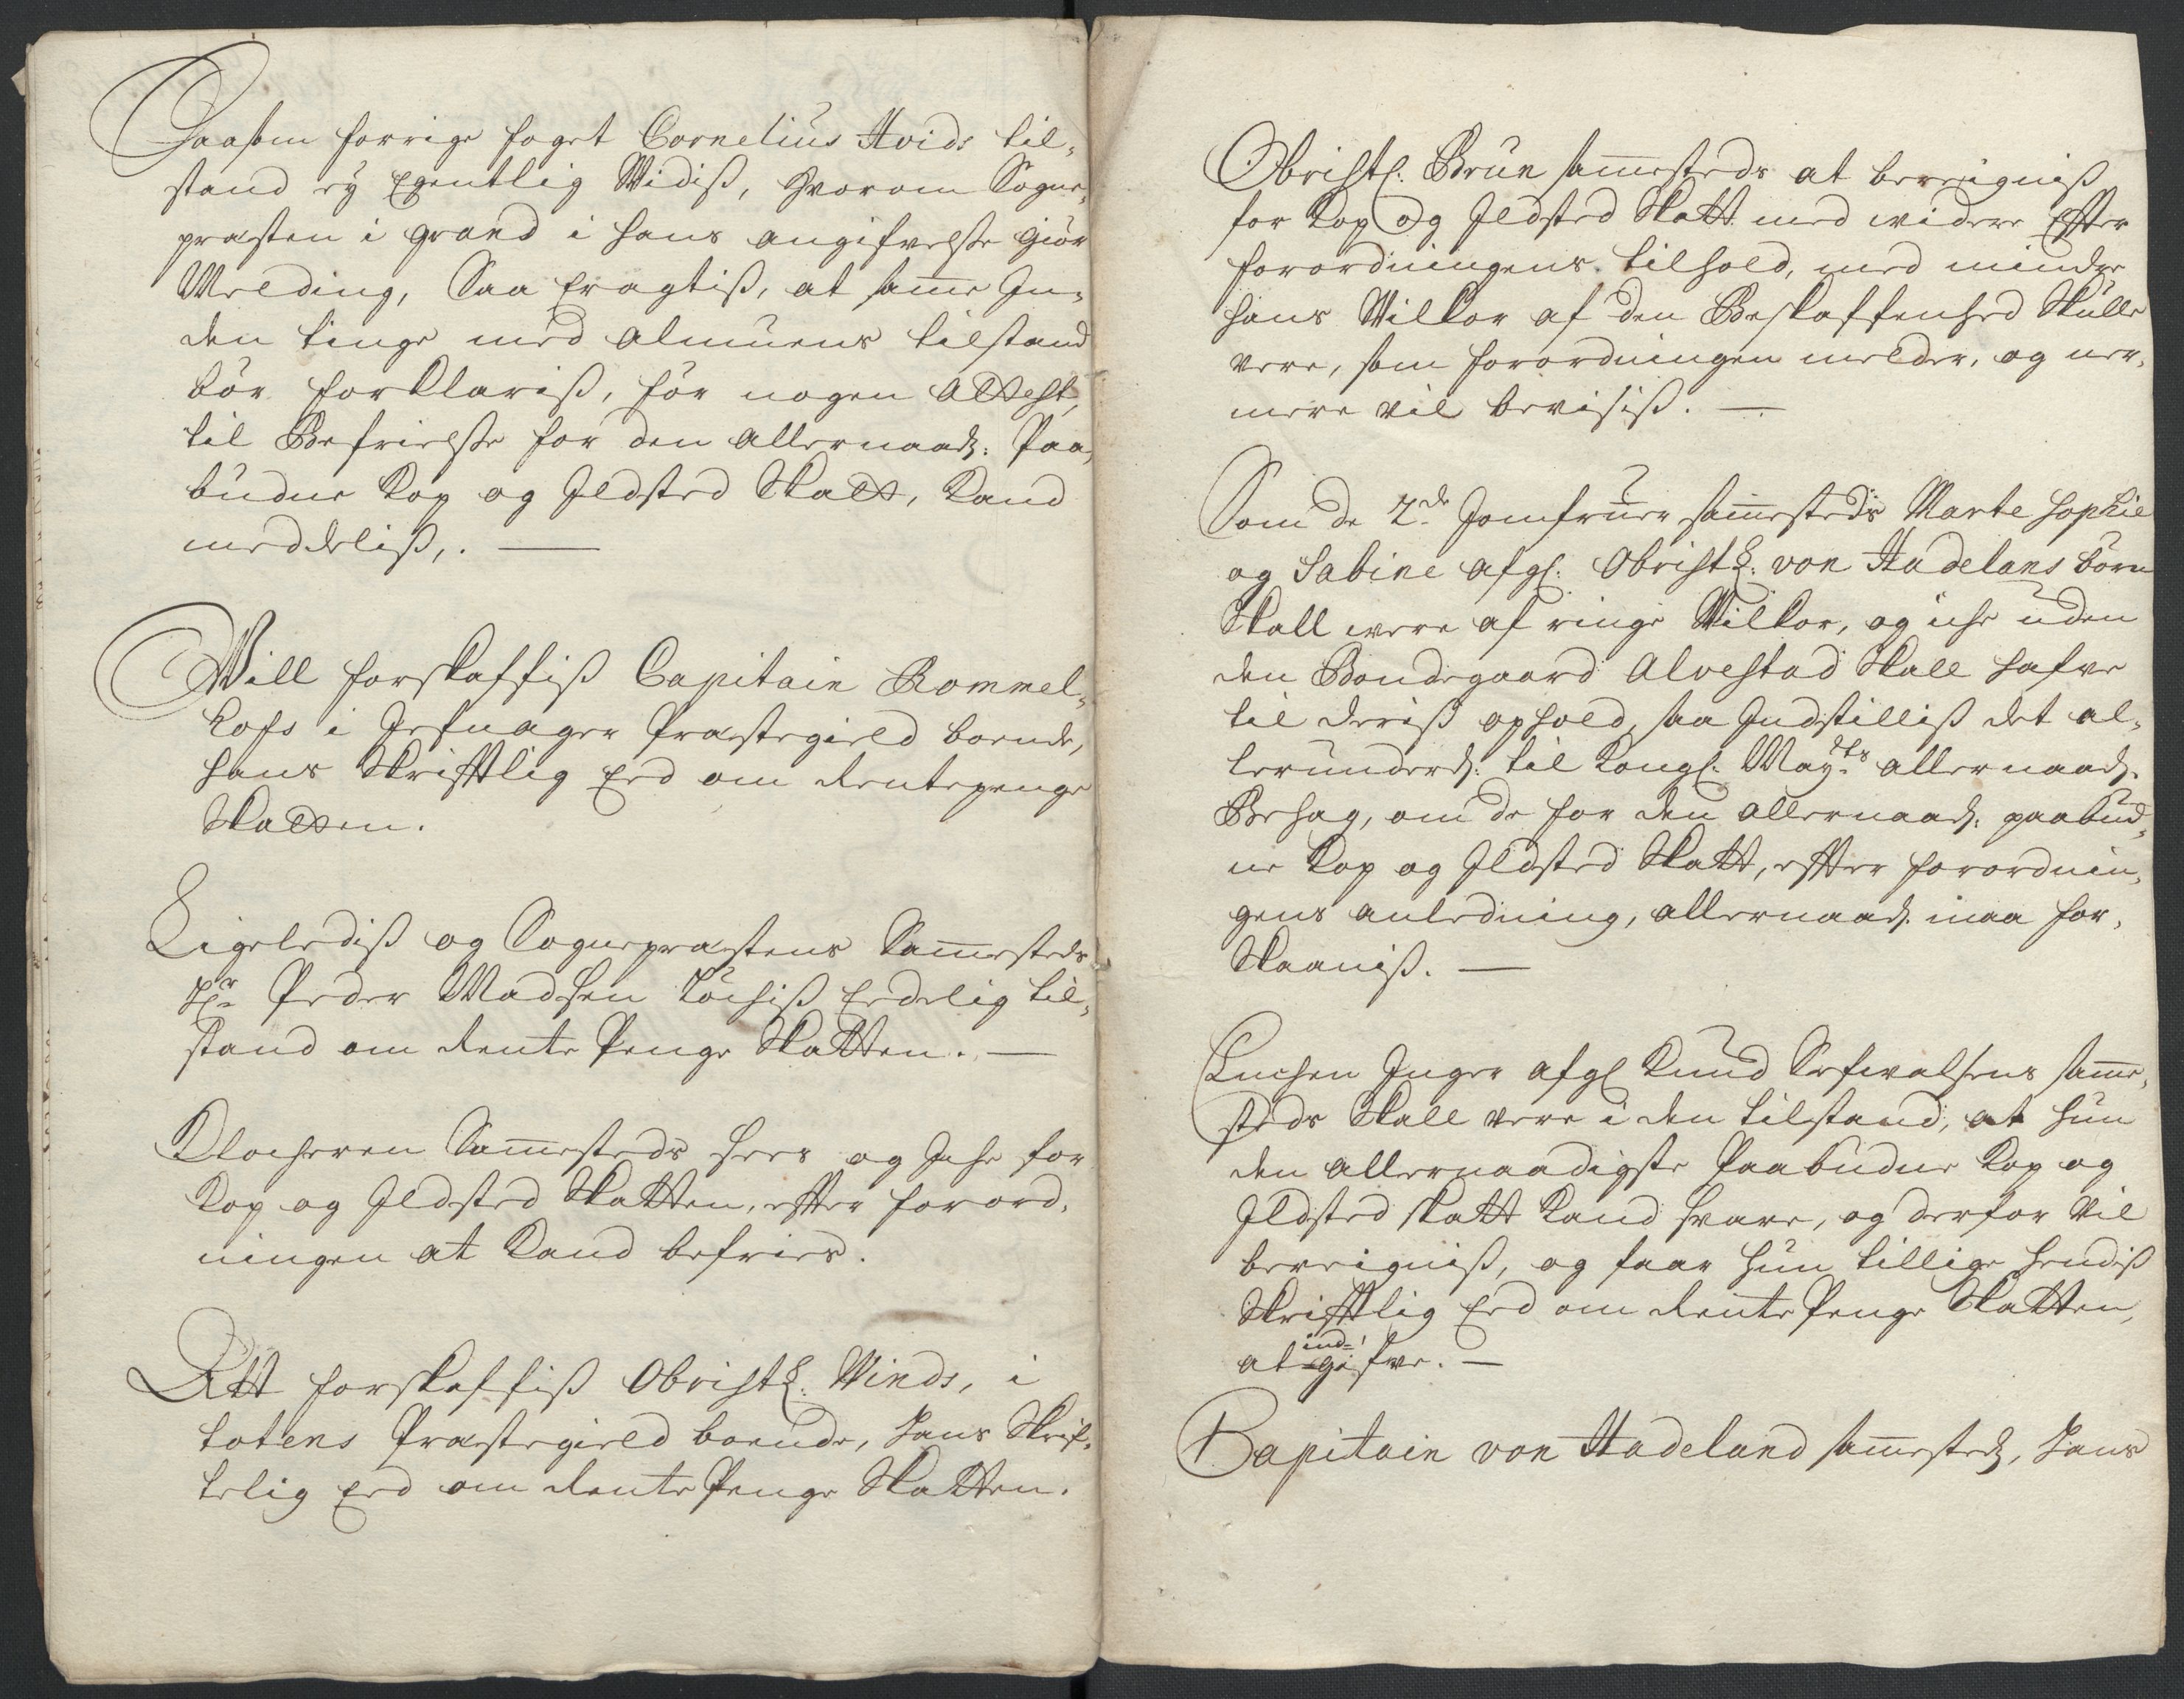 Saasom forrige foget Cornelius Hvids til¬
stand ey Egentlig Widiß, hvorom Sogne¬
præsten i grand i hans angifvelße giør
Melding, Saa Eragtiß, at samme In¬
den tinge med Almuens tilstand
bør forklariß, før nogen Attest,
til Befrielße for den allernaadg: Paa¬
budne Kop og Ildsted Skatt, kand
meddeliß,. —
Will forskaffiß Capitain Rommel¬
hofs i Jefnager Præstegield boende,
hans Skrifftlig Eed om Rentepenge
Skatten.
Ligelediß og Sognepræstens Sammesteds
Hr Peder Madsen Edelig til¬
stand om Rente Penge Skatten. —
Klocheren Sammesteds sees og Iche for
Kop og Ildsted Skatten, effter forord¬
ningen at kand befries.
Att forskaffiß Obristl: Vinds, i
totens Præstegield boende, hans Skrif¬
telig Eed om Rente Penge Skatten.
Obristl: Brun sammesteds at bereigniß
for Kop og Ildsted Skatt med widere Effter
forordningens tilhold, med mindre
hans Wilkor af den Beskaffenhed Skulle
være, som forordningen melder, og nær¬
mere vil bevisiß. —
Som de 2de Jomfruer sammesteds Marte Sophie
og Sabine afgl: Obristl: von Hadelans børn
Skall were af ringe Wilkor, og iche uden
den Bondegaard Alvestad Skall hafve
til deriß ophold, saa Indstilliß det al¬
lerunderdg: til Kongl: Mayts allernaadg.
Behag, om de for den allernaadg: paabud¬
ne Kop og Ildsted Skatt, effter forordnin¬
gens anledning, allernaadg. maa for¬
Skaaniß. —
Enchen Inger afgl Knud Sefwalsens samme¬
steds Skall være i den tilstand, at hun
den allernaadigste Paabudne Kop og
Ildsted skatt kand svare, og derfor Vil
bereigniß, og faar hun tillige hendiß
Skrifftlig Eed om Rente Penge Skatten,
at ind¬gifve. —
Capitain von Hadeland sammestedg, hans